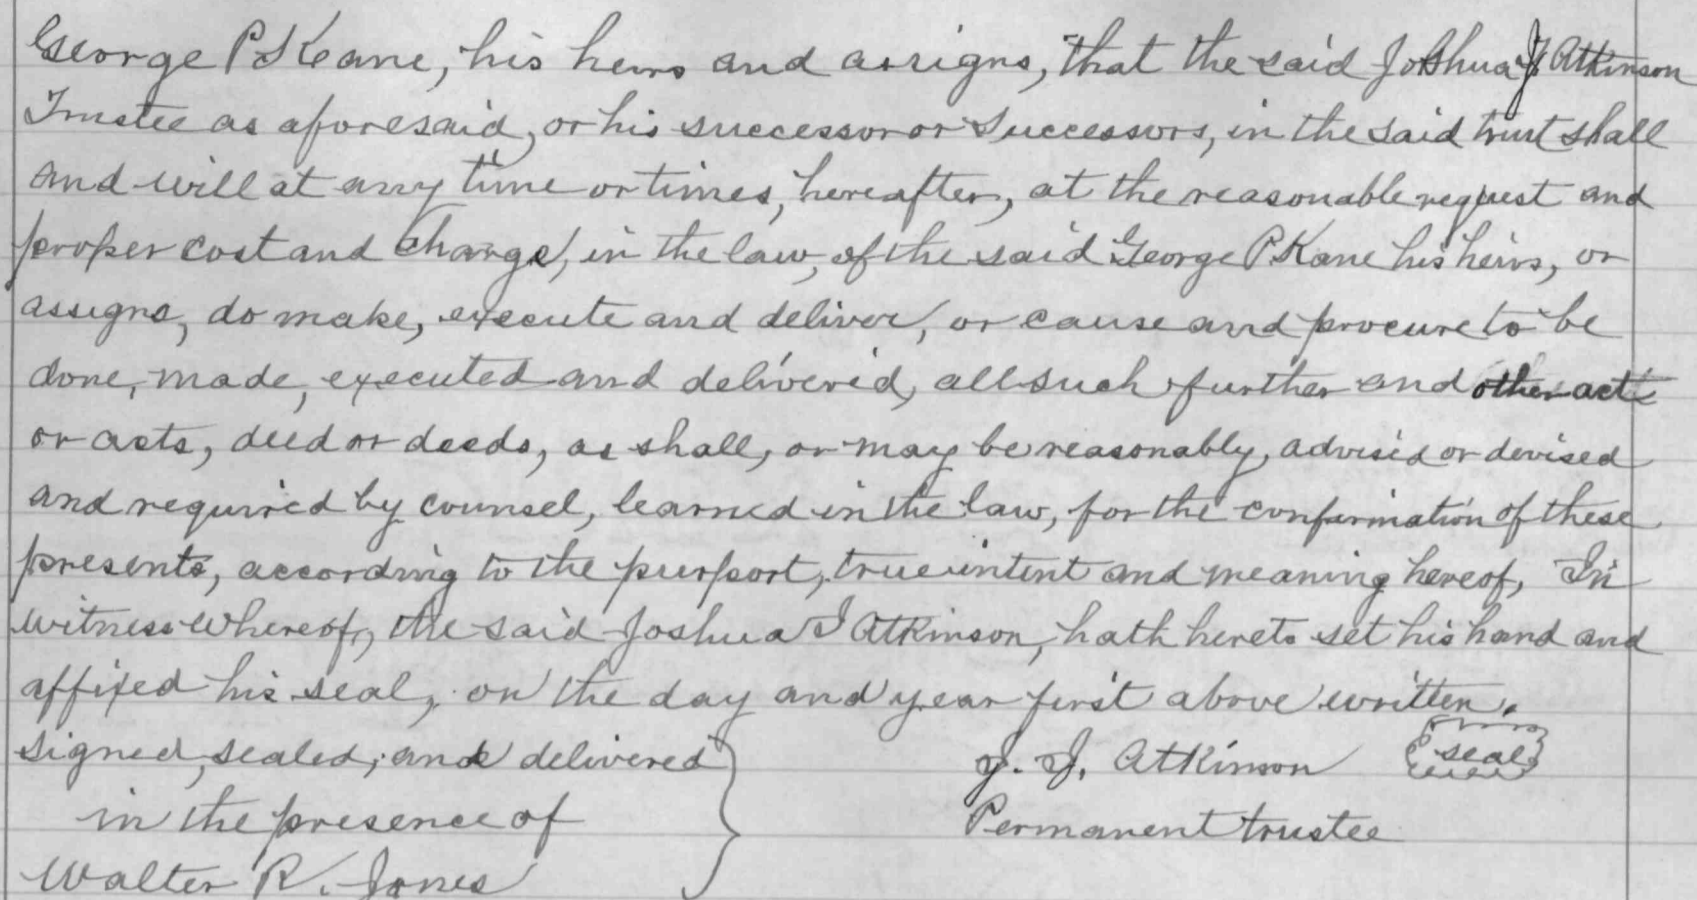 George P Kane, his heirs and assigns, that the said Joshua J Atkinson
Trustee as aforesaid, or his successor or successors, in the said trust shall
and will at any time or times, hereafter, at the reasonable request and
proper cost and charge, in the law, of the said George P Kane his heirs, or
assigns, do make, execute and deliver, or cause and procure to be
done, made, executed and delivered, all such further and other act
or acts, deed or deeds, as shall, or may be reasonably, advised or devised
and required by counsel, learned in the law, for the confirmation of these
presents, according to the purport, true intent and meaning hereof, In
witness whereof, the said Joshua J Atkinson, hath hereto set his hand and
affixed his seal, on the day and year first above written.
signed, sealed, and delivered J. J. Atkinson seal
in the presence of Permanent trustee
Walter R. Jones